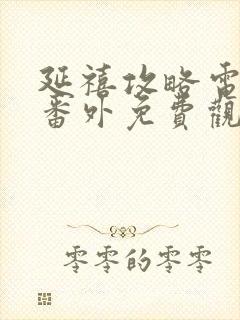 延禧攻略電
番外免費觀
零零的零零